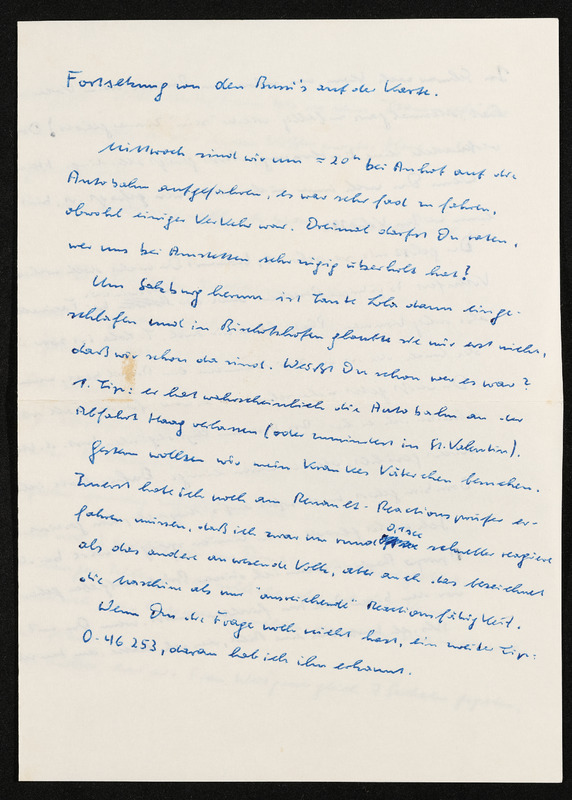 Fortsetzung von den Bussi's auf der Karte.
Mittwoch sind wir um = 20h bei Anhof auf die
Autobahn aufgefahren, es war sehr fad zu fahren,
obwohl einiger Verkehr war. Dreimal darfst Du raten,
wer uns bei Amstetten sehr zügig überholt hat?
Um Salzburg herum ist Tante Lola dann einge-
schlafen und in Bischofshofen glaubte sie mir erst nicht,
daß wir schon da sind. Weißt Du schon wer es war?
1. Tip: er hat wahrscheinlich die Autobahn an der
Abfahrt Haag verlassen (oder zumindest in St. Valentin).
Gestern wollten wir mein krankes Väterchen besuchen.
Zuerst habe ich noch am Renault-Reactionsprüfer er-
fahren müssen, daß ich zwar um rund 0,1 sec schneller reagiere
als das andere anwesende Volk, aber auch das bezeichnet
die Maschine als nur "ausreichende" Reactionsfähigkeit.
Wenn Du die Frage noch nicht hast, ein zweiter Tip:
O-46 253, daran hab ich ihn erkannt.